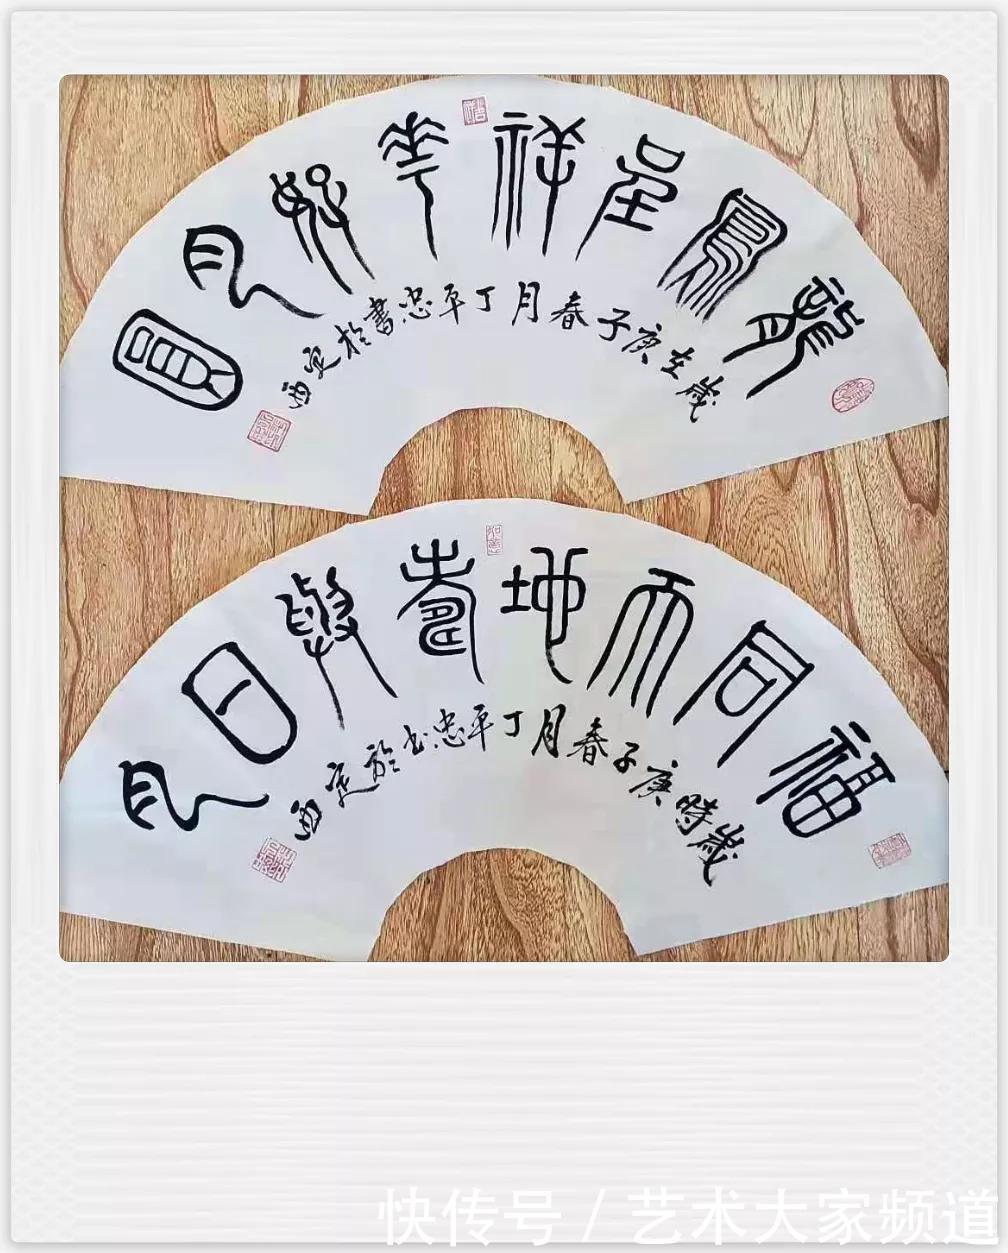 龍鳳呈祥華好月圓
歲在庚子春月丁平忠書於定西
福同天地壽與日月
歲時庚子春月丁平忠书於定西
快传号 / 艺术大家频道